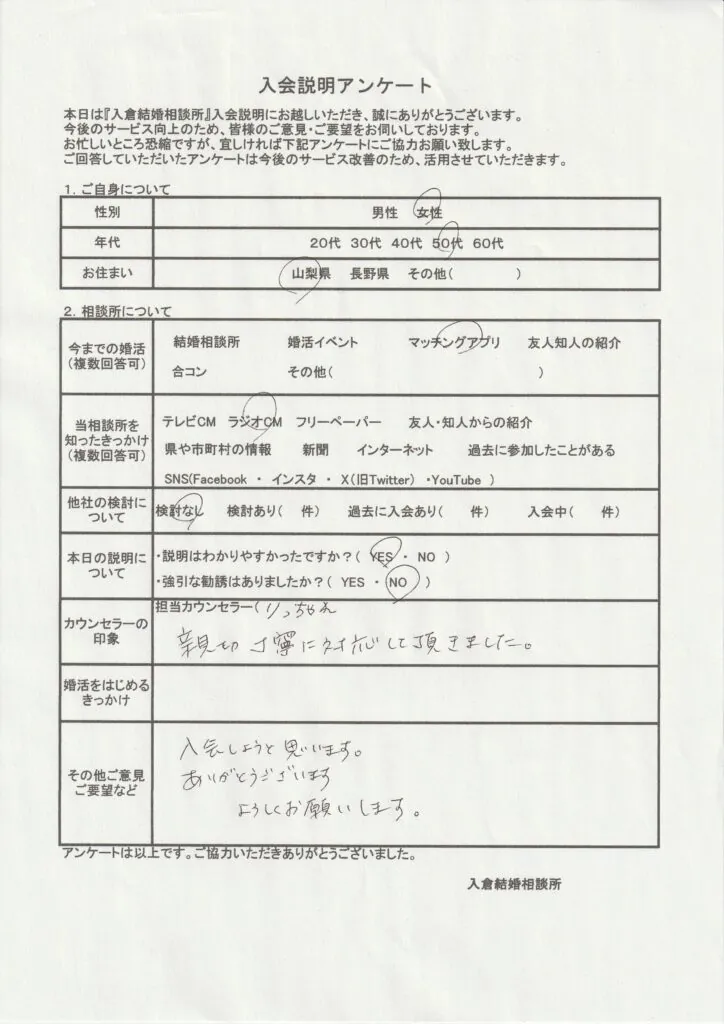 入会説明アンケート
本日は『入倉結婚相談所』入会説明にお越しいただき、誠にありがとうございます。
今後のサービス向上のため、皆様のご意見・ご要望をお伺いしております。
お忙しいところ恐縮ですが、宜しければ下記アンケートにご協力お願い致します。
ご回答していただいたアンケートは今後のサービス改善のため、活用させていただきます。
1. ご自身について
性別 男性 女性
年代 20代 30代 40代 50代 60代
お住まい 山梨県 長野県 その他( )
2. 相談所について
今までの婚活
(複数回答可)
結婚相談所 婚活イベント マッチングアプリ 友人知人の紹介
合コン その他( )
当相談所を
知ったきっかけ
(複数回答可)
テレビCM ラジオCM フリーペーパー 友人・知人からの紹介
県や市町村の情報 新聞 インターネット 過去に参加したことがある
SNS(Facebook ・ インスタ ・ X(旧Twitter) ・YouTube )
他社の検討に
ついて
検討なし 検討あり( 件) 過去に入会あり( 件) 入会中( 件)
本日の説明に
ついて
・説明はわかりやすかったですか?( YES ・ NO )
・強引な勧誘はありましたか?( YES ・ NO )
カウンセラーの
印象
担当カウンセラー( りっちゃん
親切丁寧に対応して頂きました。
婚活をはじめる
きっかけ
その他ご意見
ご要望など
入会しようと思います。
ありがとうございます
よろしくお願いします。
アンケートは以上です。ご協力いただきありがとうございました。
入倉結婚相談所